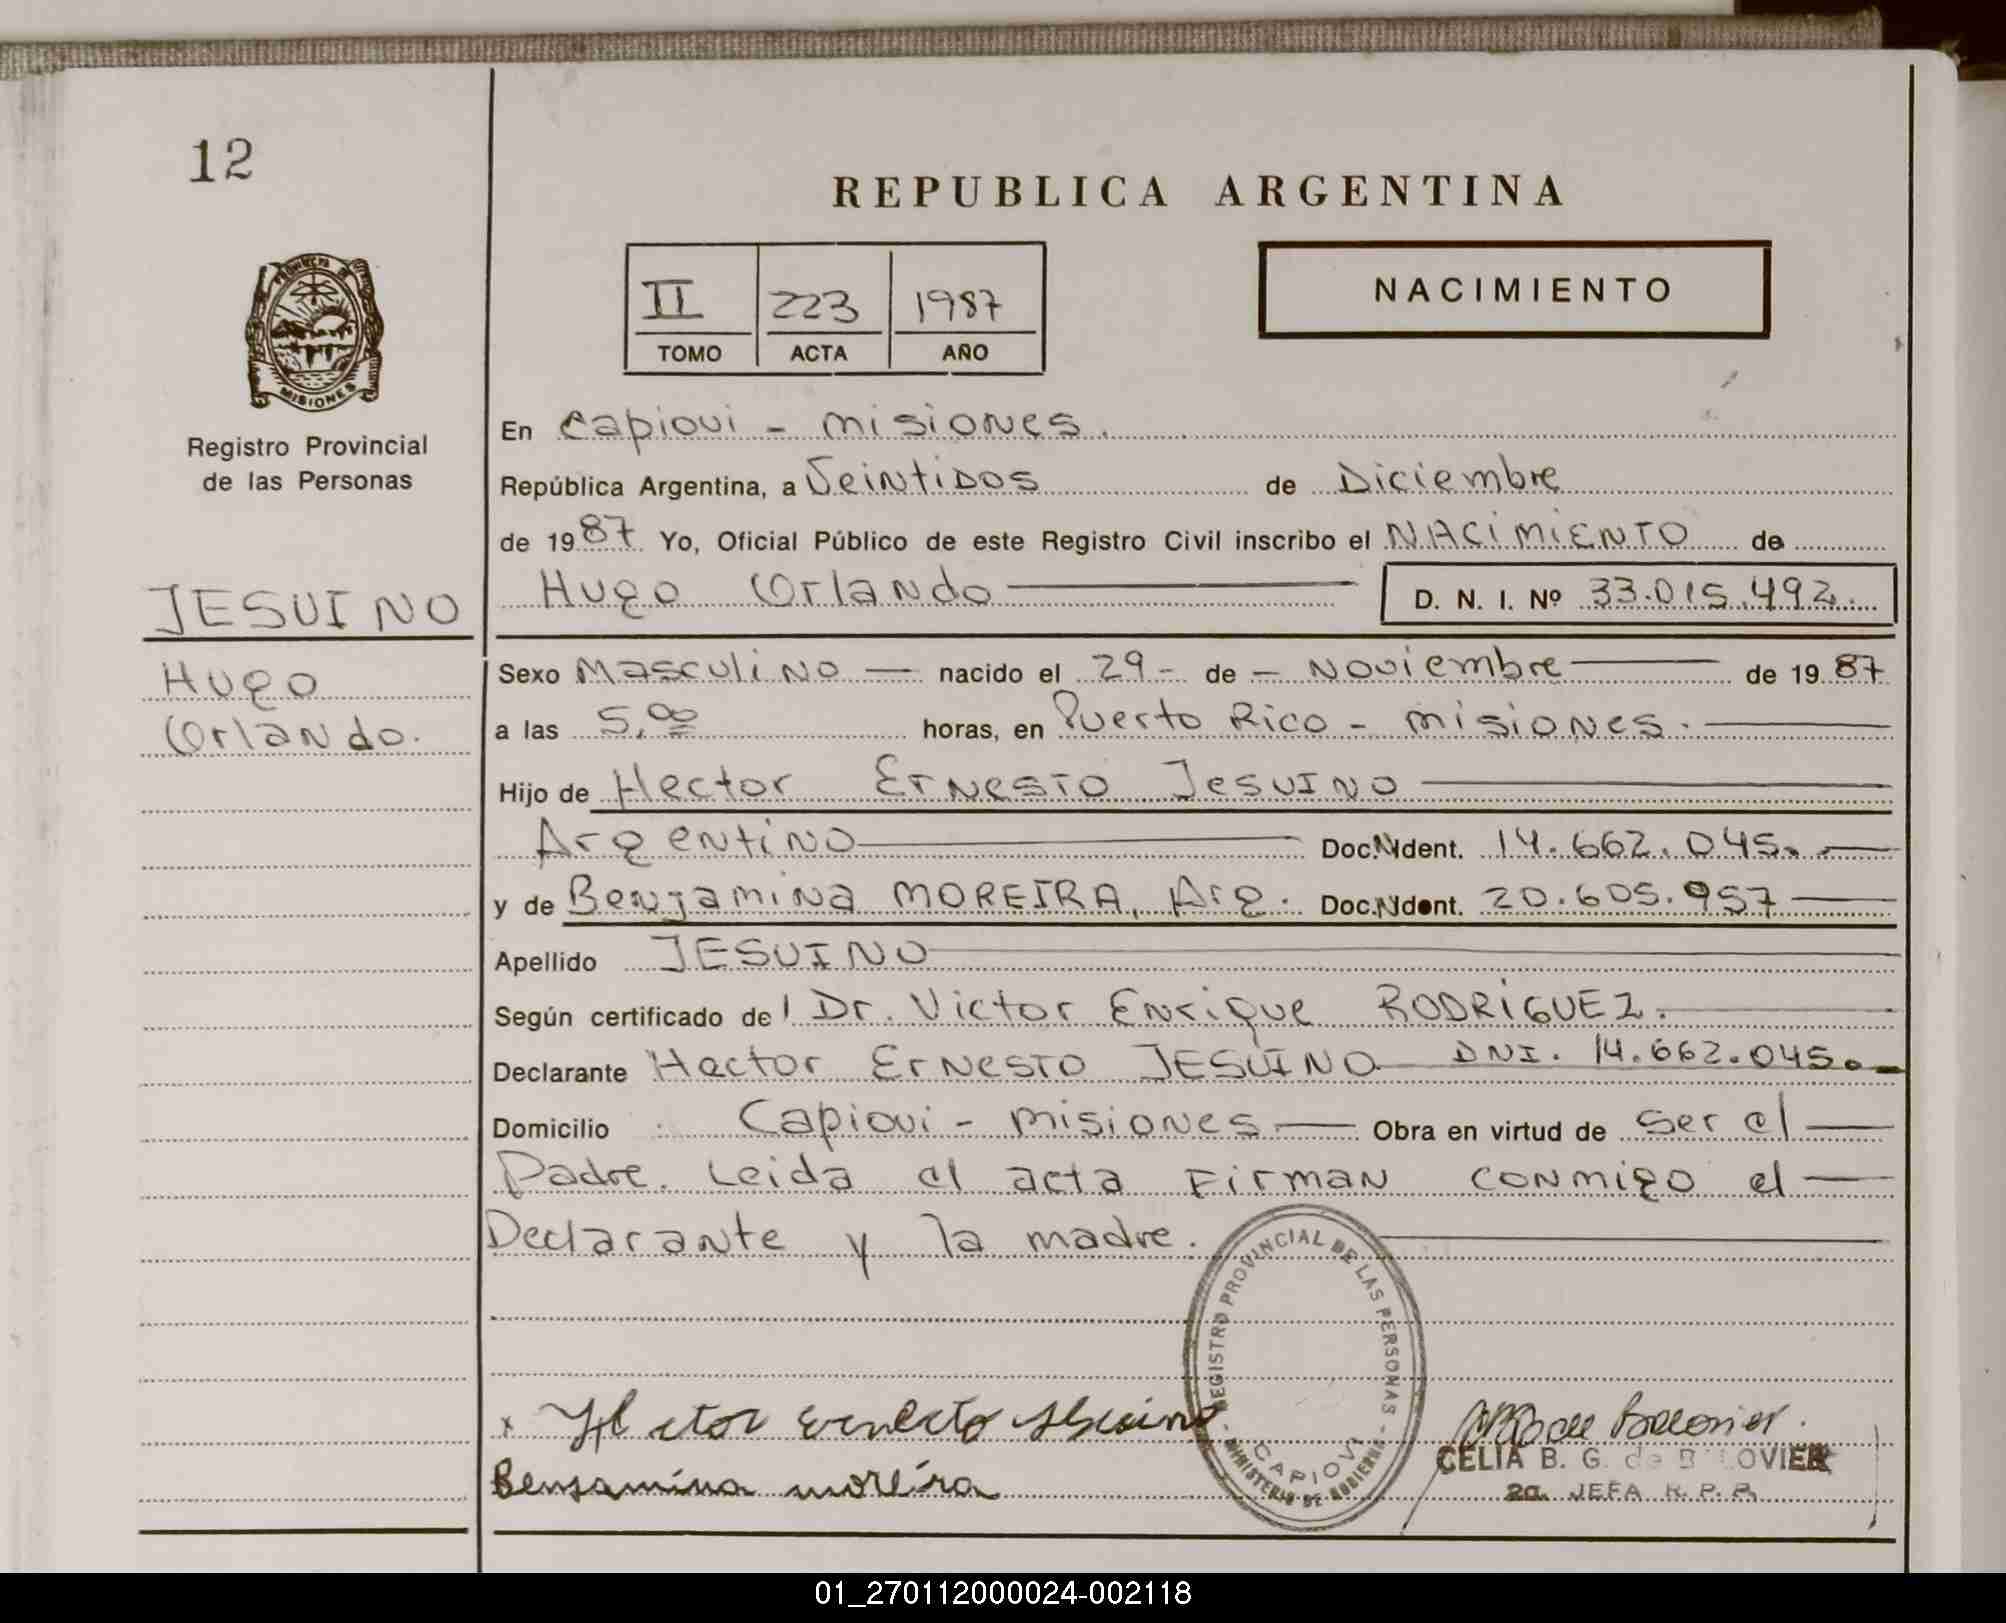 12
REPUBLICA ARGENTINA
PROVINCIA DE
MISIONES
Registro Provincial
de las Personas
II 223 1987
TOMO ACTA AÑO
NACIMIENTO
En Capiovi - misiones.
República Argentina, a Veintidos de Diciembre
de 1987 Yo, Oficial Público de este Registro Civil inscribo el NACIMIENTO de
Hugo Orlando D. N. I. Nº 33.015.492.
JESUINO
Hugo
Orlando.
Sexo Masculino — nacido el 29- de - Noviembre de 1987
a las 5,00 horas, en Puerto Rico - misiones.
Hijo de Hector Ernesto Jesuino
Argentino Doc.Nident. 14.662.045.-
y de Benjamina MOREIRA, Arg. Doc.Nident. 20.605.957
Apellido JESUINO
Según certificado del Dr. Victor Enrique RODRiGUEZ.
Declarante Hector Ernesto JESUINO DNI. 14.662.045.-
Domicilio Capiovi - misiones Obra en virtud de ser el
Padre. Leida el acta Firman conmigo el
Declarante y la madre.
REGISTRO PROVINCIAL DE LAS PERSONAS
- MINISTERIO DE GOBIERNO -
CAPIOVI
x Hector Ernesto Jesuino
Benjamina moreira
CELIA B. G. de
2a. JEFA R. P. P.
01_270112000024-002118